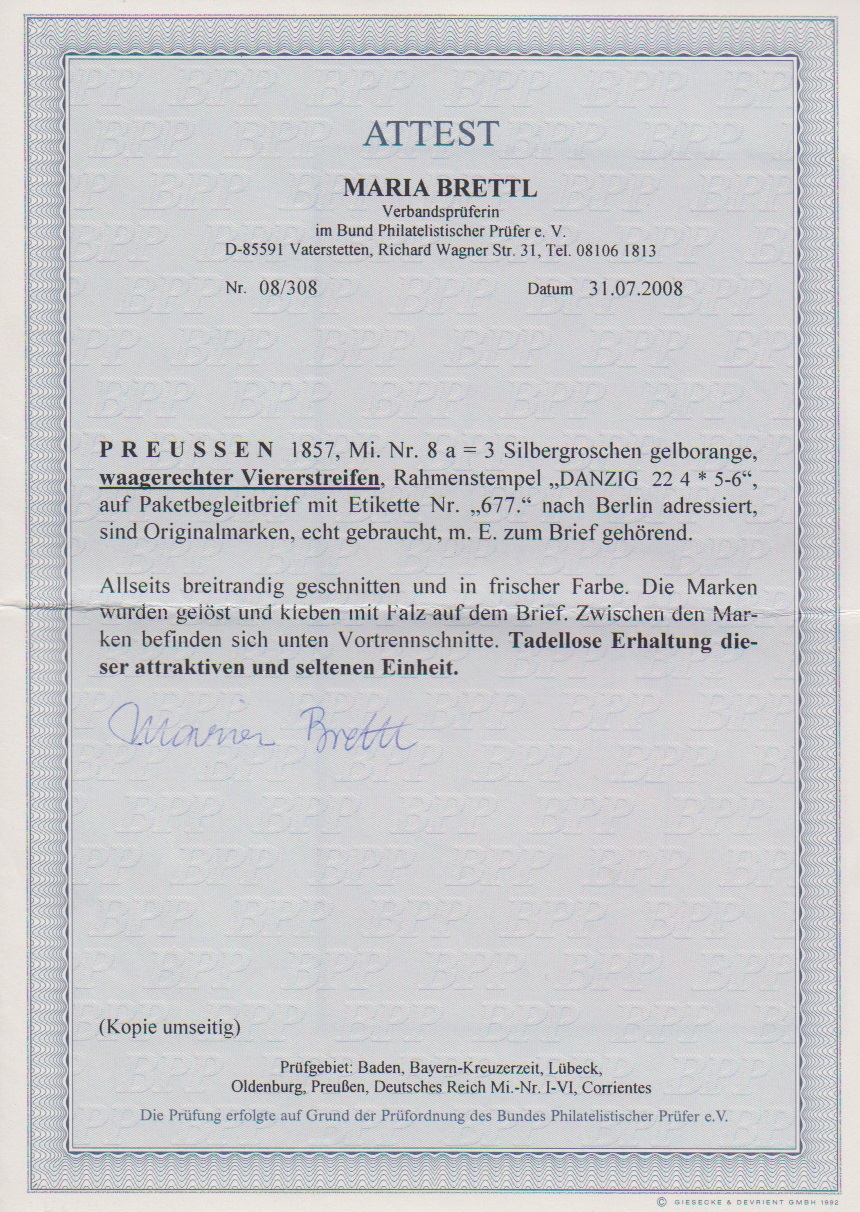 ATTEST
MARIA BRETTL
Verbandsprüferin
im Bund Philatelistischer Prüfer e. V.
D-85591 Vaterstetten, Richard Wagner Str. 31, Tel. 08106 1813
Nr. 08/308 Datum 31.07.2008
PREUSSEN 1857, Mi. Nr. 8 a = 3 Silbergroschen gelborange,
waagerechter Viererstreifen, Rahmenstempel „DANZIG 22 4 * 5-6“,
auf Paketbegleitbrief mit Etikette Nr. „677.“ nach Berlin adressiert,
sind Originalmarken, echt gebraucht, m. E. zum Brief gehörend.
Allseits breitrandig geschnitten und in frischer Farbe. Die Marken
wurden gelöst und kleben mit Falz auf dem Brief. Zwischen den Mar-
ken befinden sich unten Vortrennschnitte. Tadellose Erhaltung die-
ser attraktiven und seltenen Einheit.
Maria Brettl
(Kopie umseitig)
Prüfgebiet: Baden, Bayern-Kreuzerzeit, Lübeck,
Oldenburg, Preußen, Deutsches Reich Mi.-Nr. I-VI, Corrientes
Die Prüfung erfolgte auf Grund der Prüfordnung des Bundes Philatelistischer Prüfer e.V.
© GIESECKE & DEVRIENT GMBH 1992